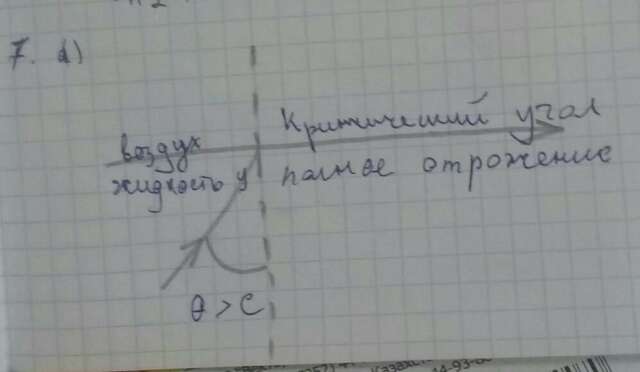 7. а)
Критический угол
воздух
жидкость у полное отрожение
θ > C